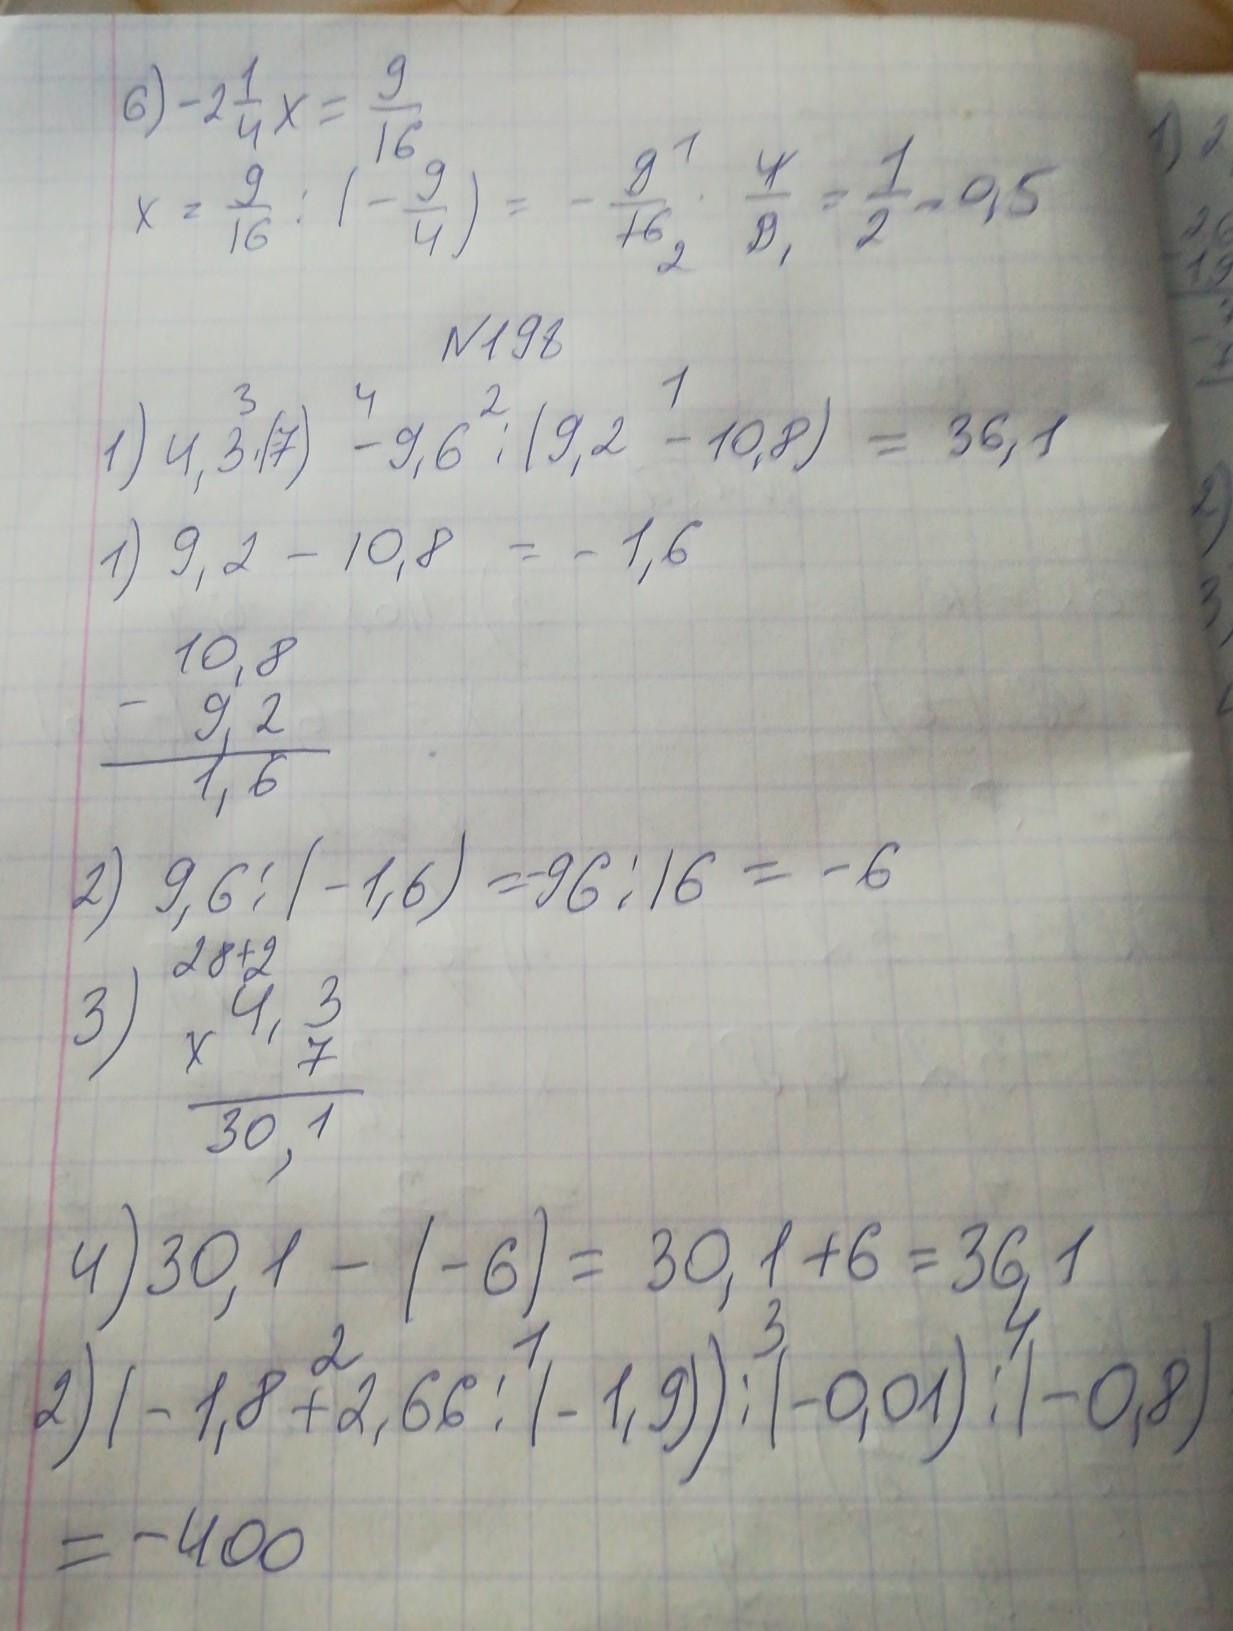 6) -2 1/4 x = 9/16
x = 9/16 : (- 9/4) = - 9/16 · 4/9 = 1/2 - 0,5
1 2 1
N198
3 4 2 1
1) 4,3·(7) - 9,6 : (9,2 - 10,8) = 36,1
1) 9,2 - 10,8 = - 1,6
10,8
- 9,2
1,6
2) 9,6 : (-1,6) = -96 : 16 = -6
28+2
3) 4,3
x 7
30,1
4) 30,1 - (-6) = 30,1 + 6 = 36,1
2 1 3 4
2) (-1,8 + 2,66 : (-1,9)) : (-0,01) : (-0,8)
= -400